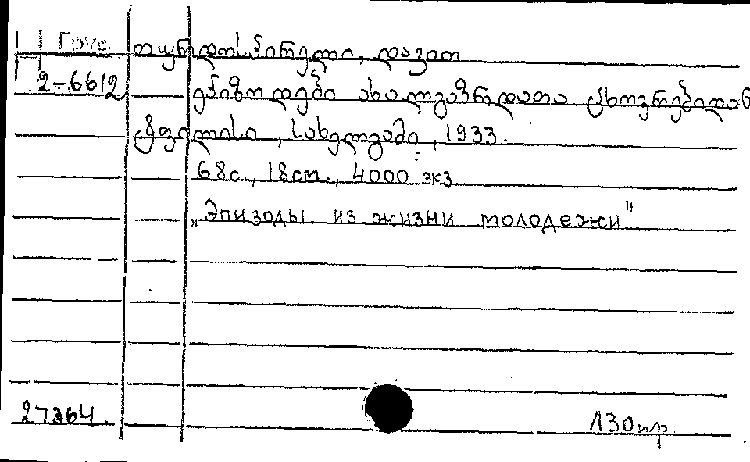 Груз.
თურდოსპირელი, დავით
2-6612
ეპიზოდები ახალგაზრდათა ცხოვრებიდან
ტფილისი, სახელგამი, 1933.
68с., 18см., 4000 экз
„Эпизоды из жизни молодежи"
27364.
130 пр.